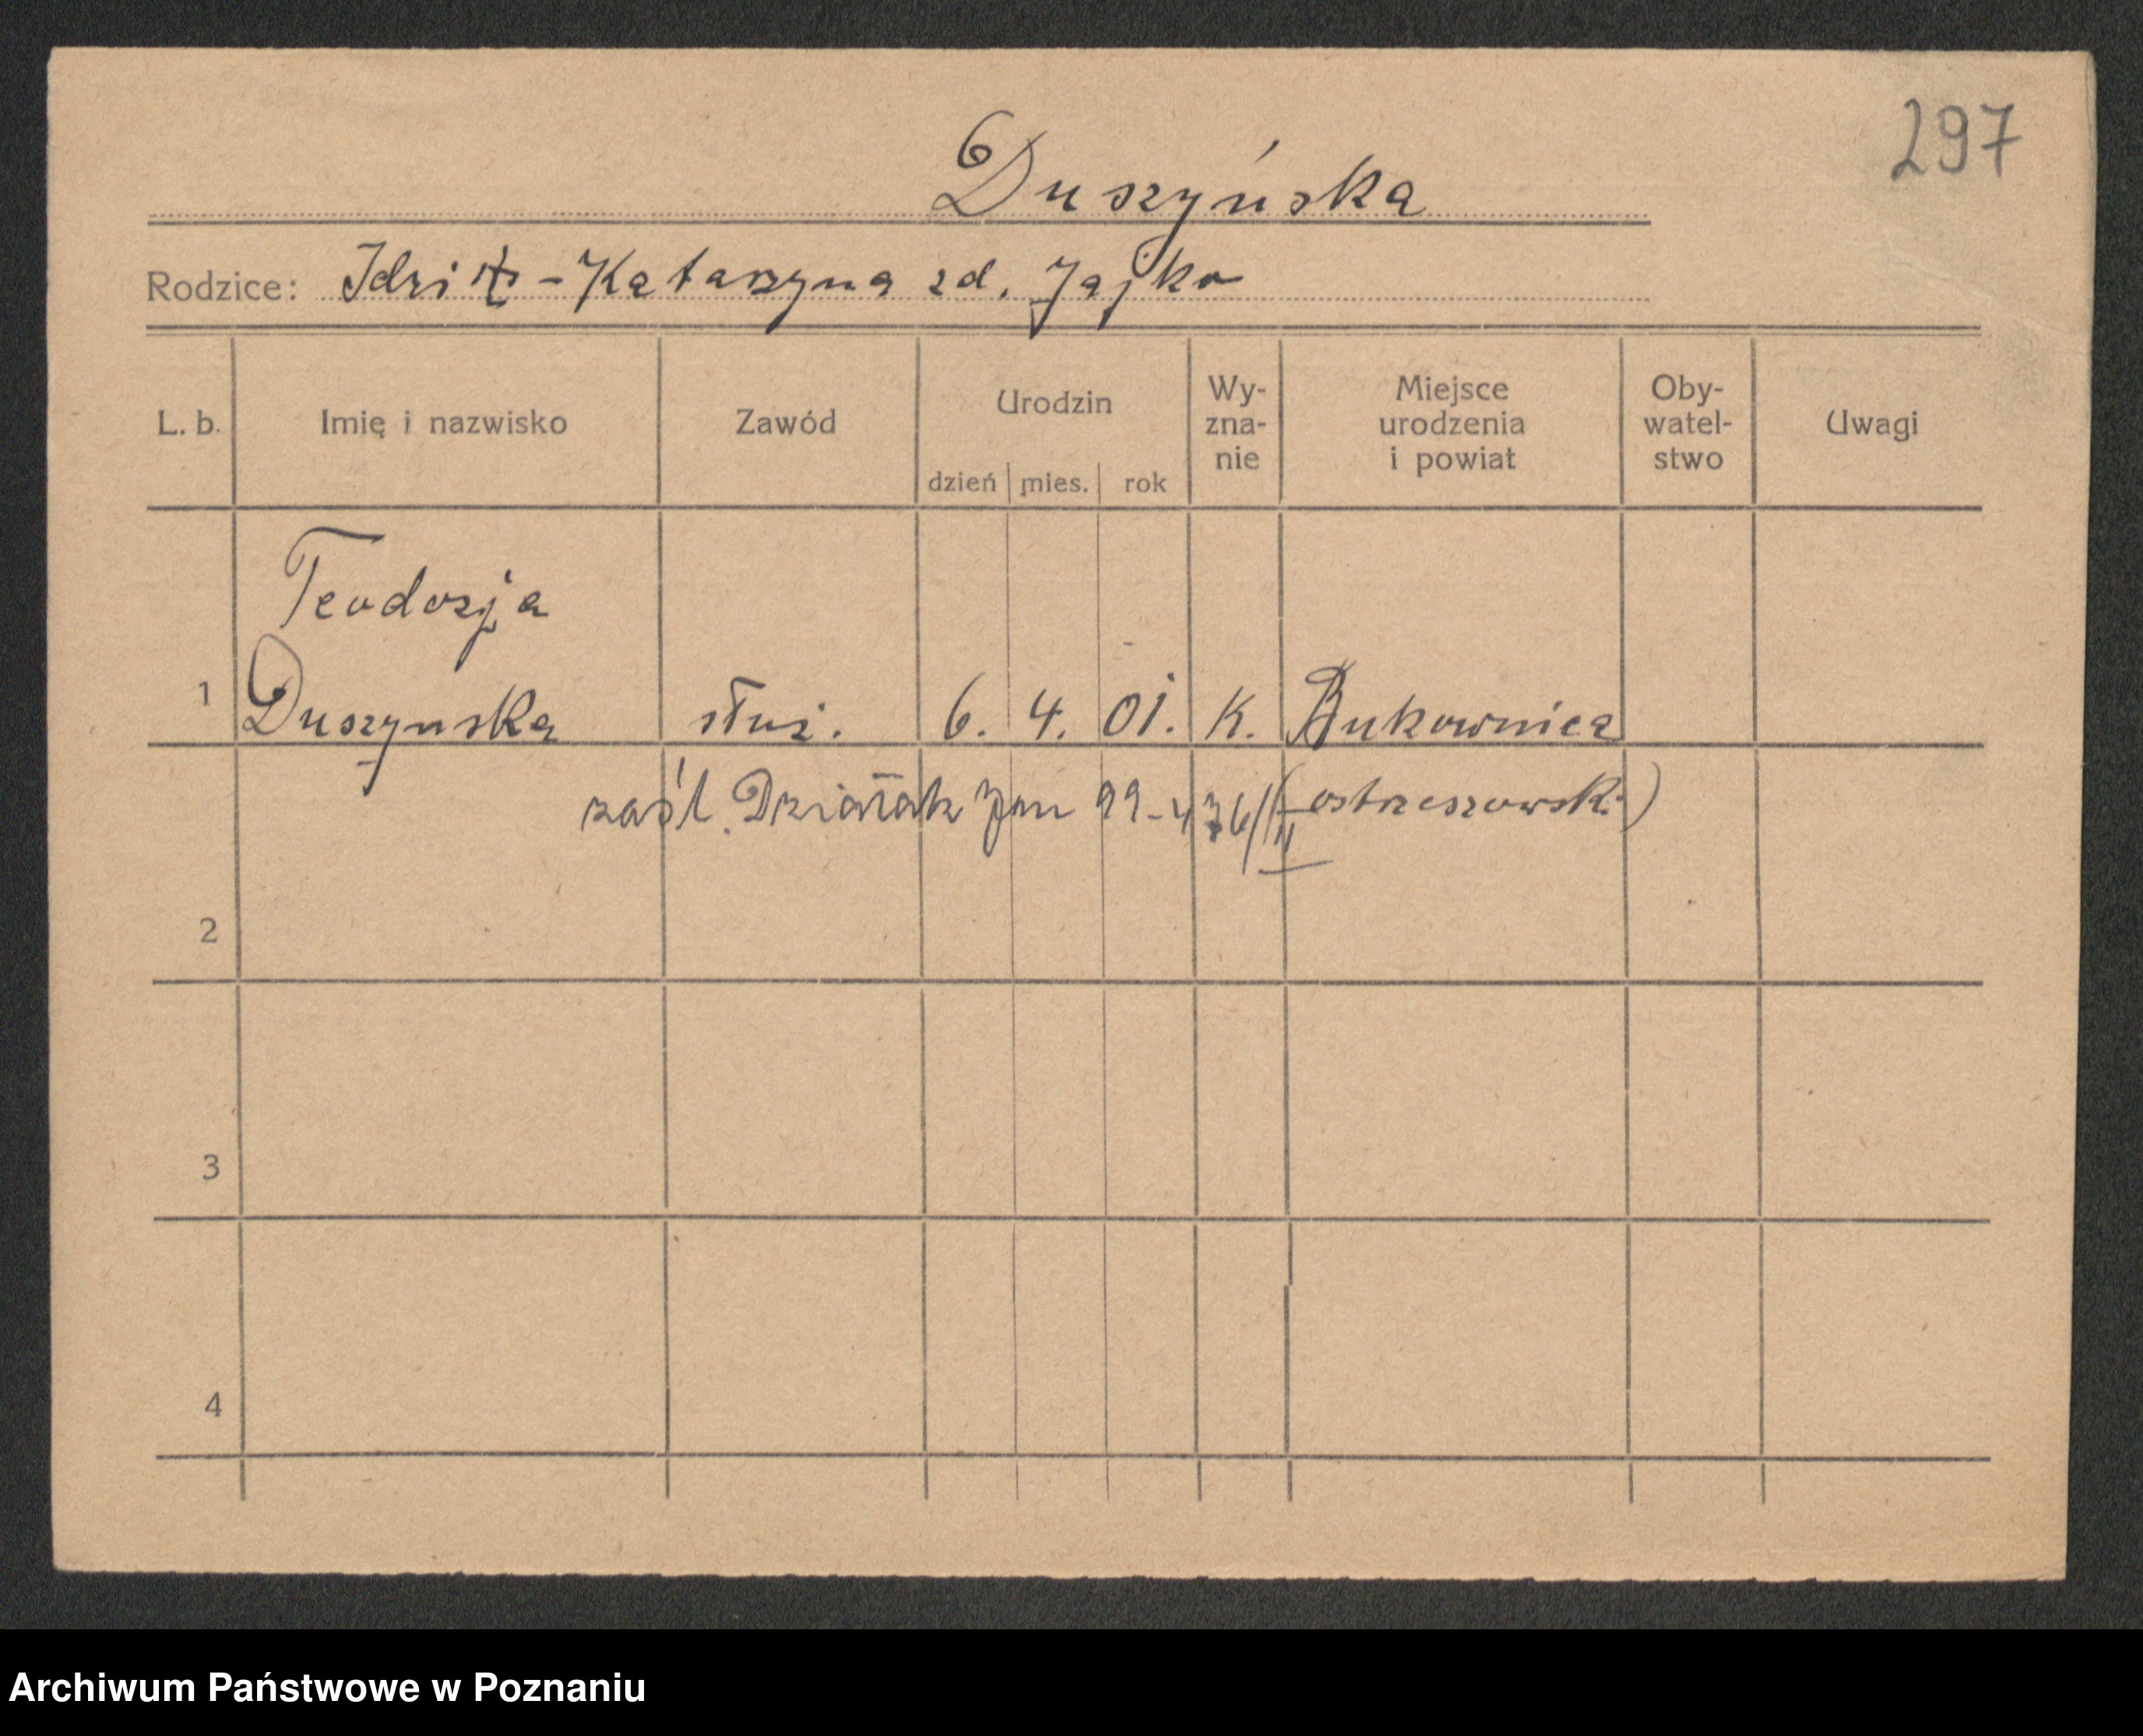 297
6
Duszyńska
Rodzice: Idzi - Katarzyna zd. Jajko
L. b. Imię i nazwisko Zawód Urodzin dzień mies. rok Wy-zna-nie Miejsce urodzenia i powiat Oby-watel-stwo Uwagi
Teodozja
1 Duszynska służ. 6. 4. 01. K. Bukownica
zaśl. Działak (ostrzeszowsk.)
2
3
4
Archiwum Państwowe w Poznaniu